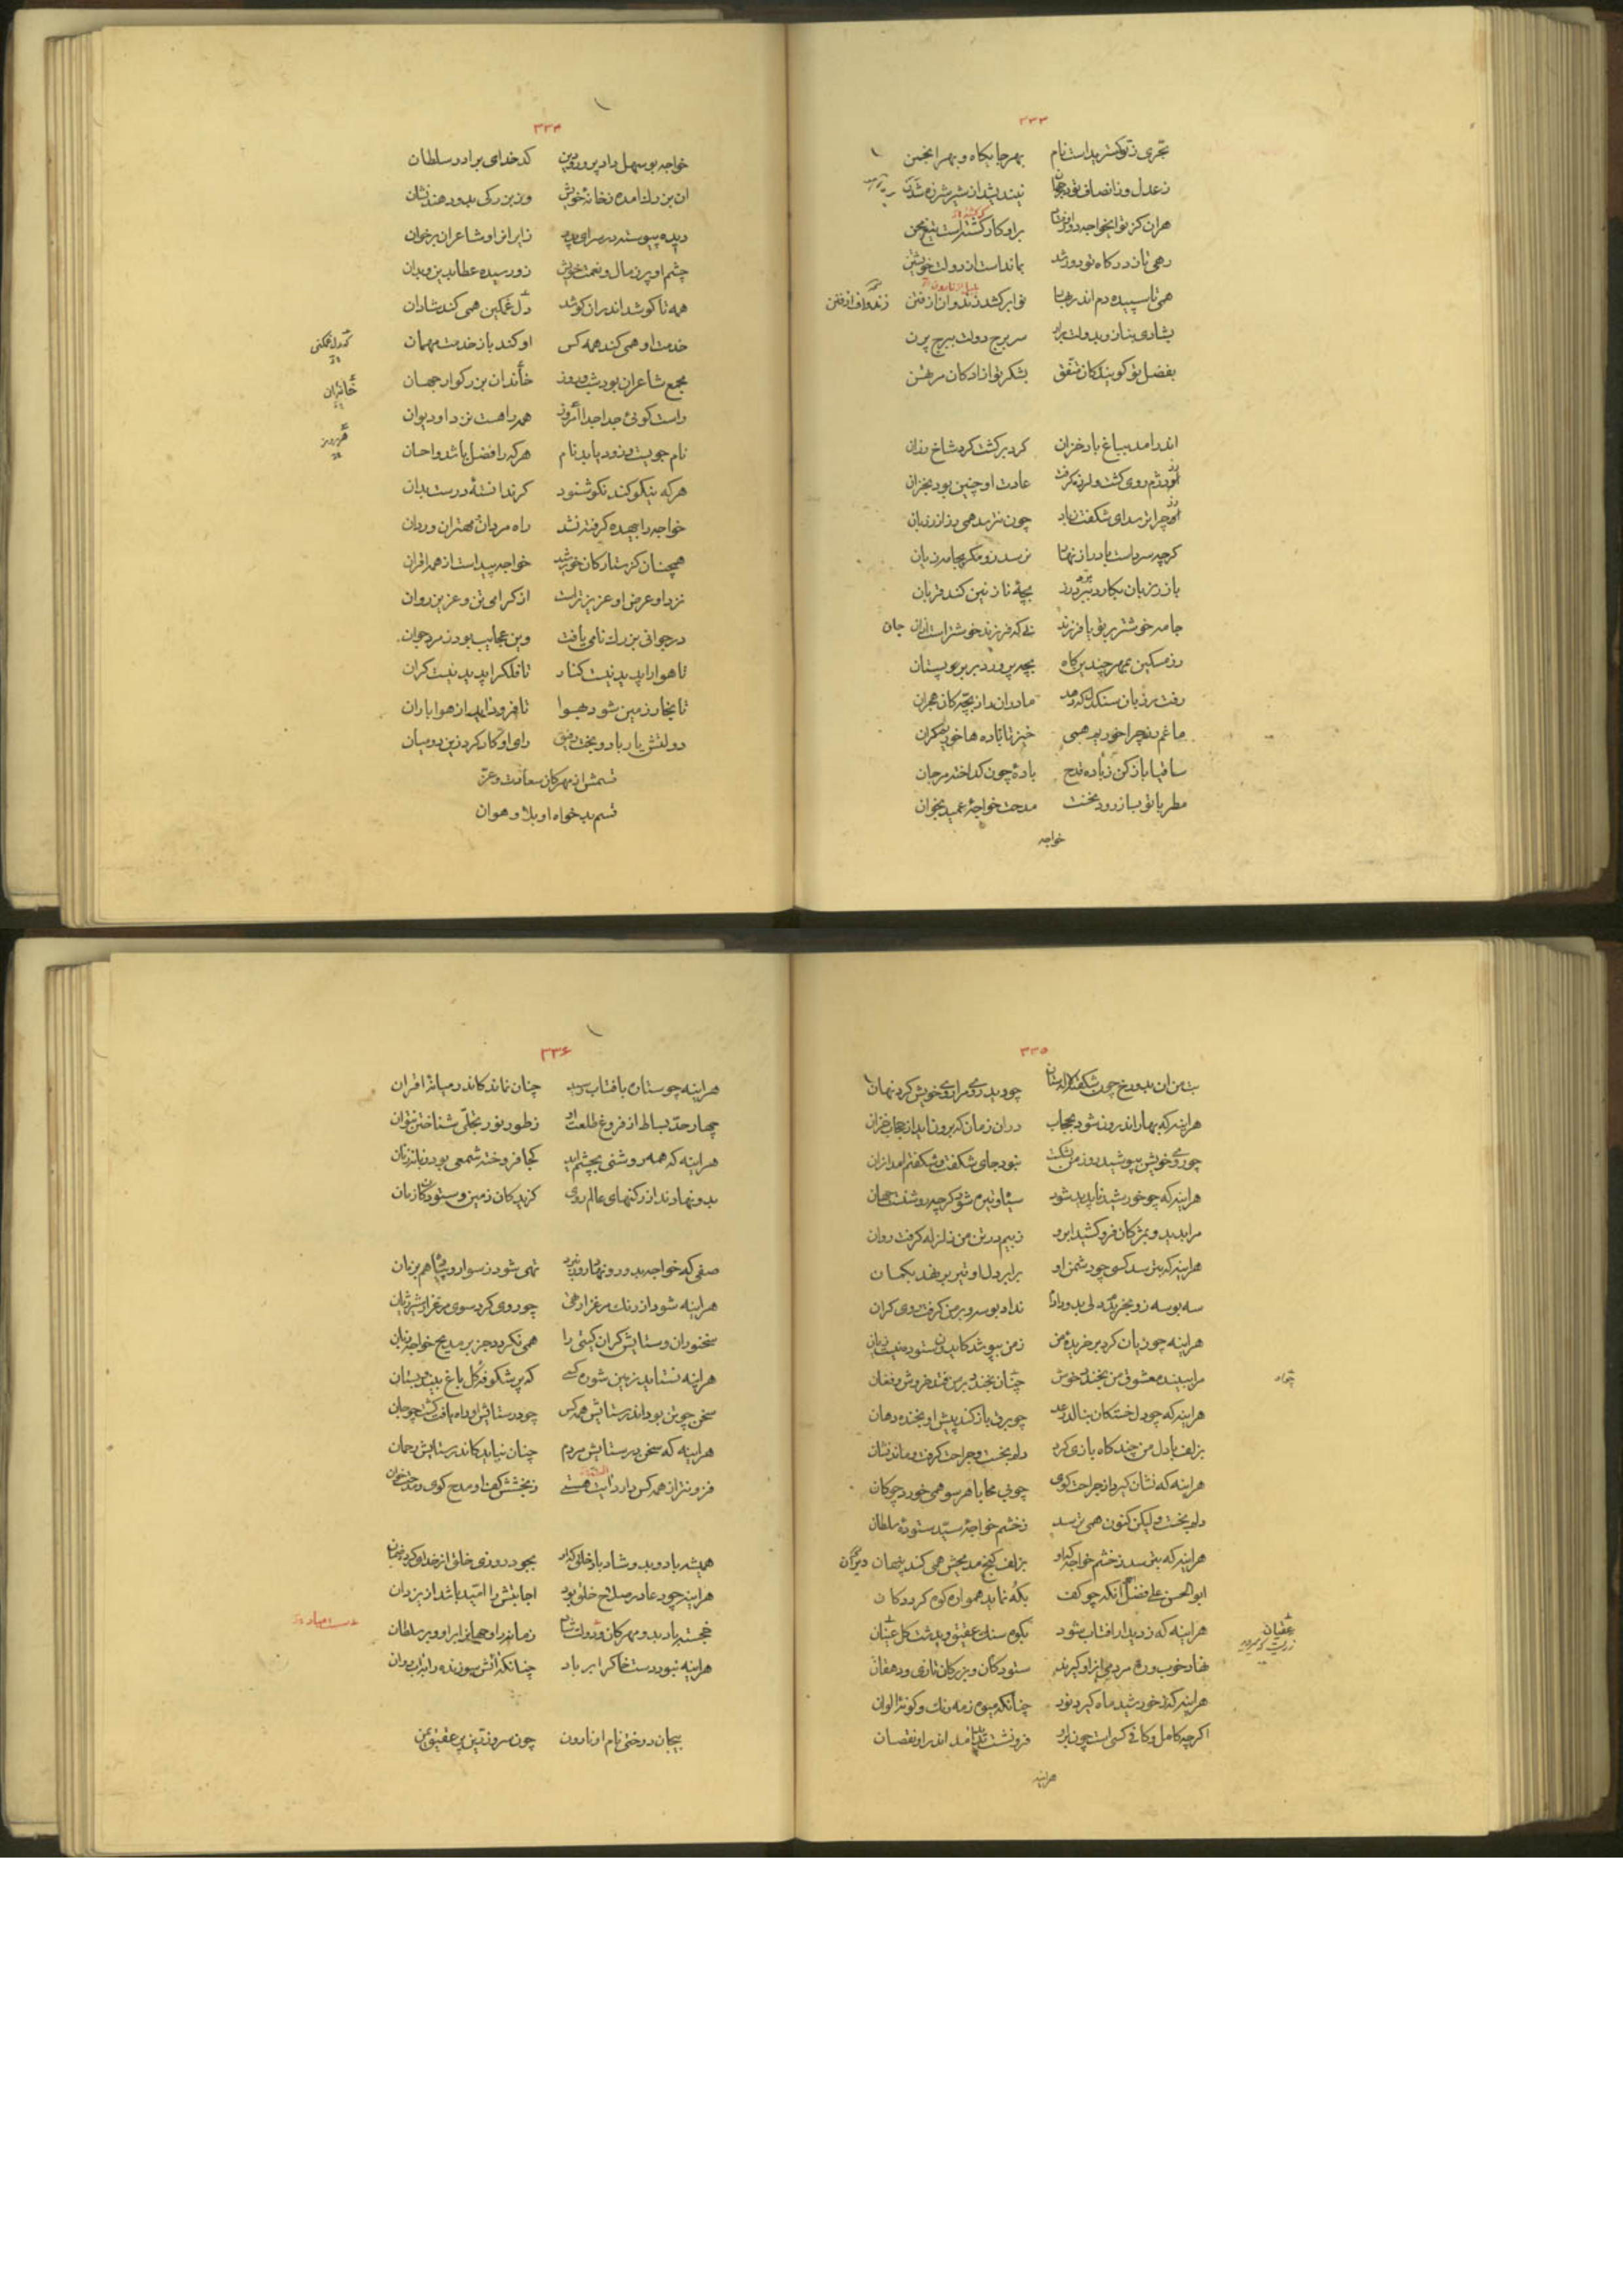 ۳۳۳
بهرجایگاه و بهرانجمن
ز عدل و ز انصاف تو در جهان نیندیشد از شیر شرزه شدن
رهی تا ز درگاه تو دور شد بماندست از دولت خویشتن
همی تا سپیده دم اندر بهار نوا برکشد زندوان از فنن
زندواف از فنن
بشادی بناز و بدولت سر برج دولت ببرج پرن
بفضل تو گویندگان متفق بشکر تو آزادگان مرتهن
اندر آمد بباغ باد خزان گرد برگشت گرد شاخ رزان
رز دژم روی گشت و لرزه گرفت عادت او چنین بود بخزان
رز چرا ترسد ای شگفت ز باد چون نترسد همی رز از رزبان
گرچه سردست باد را از نهاد نرسد زو مگر بجامه زیان
باز رزبان بکارد ببرد بچهٔ نازنین کند قربان
جامه خوشتر بر تو یا فرزند نی که فرزند خوشتراست از جان
رز مسکین بمهر چندین گاه بچه پرورد در بر و پستان
رفت رزبان سنگدل که دهد مادران را ز بچگان هجران
ما غم رز چرا خوریم همی خیز تا باده ها خوریم گران
ساقیا باز کن ز باده قدح بادهٔ چون گداخته مرجان
مطربا تو بساز رود نخست مدحت خواجهٔ عمید بخوان
خواجه
۳۳۴
خواجه بوسهل دادپرور و دین کدخدای برادر سلطان
آن بزرگ آمده ز خانهٔ خویش وز بزرگی بدو دهند نشان
دیده پیوسته در سرای پدر زایران را و شاعران بر خوان
چشم او پر ز مال و نعمت خویش زو رسیده عطا بدین و بدان
همه تا کوشد اندران کوشد دل غمگین همی کند شادان
خدمت او همی کند همه کس او کند باز خدمت مهمان
مجمع شاعران بود شب و روز خاندان بزرگوار جهان
خانه‌ان
راست گوئی جدا جدا امروز همه را هست نزد او دیوان
نام جویست و زود یابد نام هرکه را فضل باشد و احسان
هرکه نیکو کند نکو شنود گر ندانستهٔ درست بدان
خواجه را بیهده گرفته نشد راه مردان مهتران و ردان
همچنان کز ستارگان خورشید خواجه پیداست از همه اقران
نزد او عرض او عزیزتراست از گرامی تن و عزیز روان
در جوانی بزرگ نامی یافت وین عجایب بود ز مرد جوان
تا هوا را پدید نیست کنار تا فلک را پدید نیست کران
تا بخار زمین شود بهوا تا فرود آید از هوا باران
دولتش یار باد و بخت رفیق رای او کارکرد زین دو میان
قسمش از مهرگان سعادت و عز
قسم بدخواه او بلا و هوان
۳۳۵
بت من آن بدو رخ چون شکفته لاله ستان چو دید روی مرا روی خویش کرد نهان
هراینه که بهار اندرون شود بحجاب در آن زمان که برون آید از حجاب خزان
چو روی خویش بپوشید روز من بشکست نبود جای شگفت و شکفتم آمد از آن
هراینه که چو خورشید ناپدید شود سیاه و تیره شود گرچه روشنست جهان
مرا بدید و بمژگان فرو کشید ابرو ز بیم در تن من زلزله گرفت روان
هراینه که بترسد کسی چو دشمن او برابر دل او تیر برنهد بکمان
سه بوسه زو بخریدم دلی بدو دادم نداد بوسه و بر من گرفت روی گران
مرا ببیند معشوق من بخندد خوش چنان بخندد بر من فتد خروش و فغان
هراینه که چو دل خستگان بنالد رعد چو برق باز کند پیش او بخنده دهان
بزلف با دل من چند گاه بازی کرد دلم بخست و جراحت گرفت و ماند نشان
هراینه که نشان گیرد از جراحت گوی چو بی محابا هر سو همی خورد چوگان
دلم بخست و لیکن کنون همی ترسد ز خشم خواجهٔ سید ستودهٔ سلطان
هراینه که بترسد ز خشم خواجه بزلف کنج مدیحش همی کند پنهان
ابوالحسن علی فضل احمد آنکه چو کف بکُه نماید هموار کوه گردد کان
هراینه که ز دیدار آفتاب شود بکوه سنگ عقیق و بدشت گل عقیان
عقیان
نهاد خوب و ره مردمی از او گیرند ستودگان و بزرگان تازی و دهقان
هراینه که ز خورشید ماه گیرد نور چنانکه میوه ز مه رنگ و گونهٔ الوان
اگرچه کامل و کافی کسی است چون بر او فرونشست بدید آمد اندر او نقصان
هراینه
۳۳۶
هراینه چو ستاره بآفتاب رسد چنان نماید کاندر میانهٔ اقران
چهار حد بساط از فروغ طلعت او ز طور نور تجلی شناختن نتوان
هراینه که همه روشنی بچشم آید کجا فروخته شمعی بود زبانه زنان
بدو نهادند از رکنهای عالم روی گزیدگان زمین و ستودگان زمان
صفی که خواجه بدو رو نهاد روز نبرد تهی شود ز سوار و پیاده هم بزمان
هراینه شود از رنگ مرغزار تهی چو روی کرد سوی مرغزار شیر ژیان
سخنوران و ستایش گران گیتی را همی نگردد جز بر مدیح خواجه زبان
هراینه نستاید زمین شوره کسی که پر شکوفه و گل باغ بیند و بستان
سخن چو تن بود اندر ستایش همه کس چو در ستایش او راه یافت گشت چو جان
هراینه که سخن در ستایش مردم چنان نیاید کاندر ستایش رحمان
فزونتر از همه کس دارد آلت هستی ز بخشش کف او مدح گوی و مدحت خوان
همیشه باد و بدو شاد باد خلق بجود روزی خلق از خدای کرده ضمان
هراینه چو دعا در صلاح خلق بود اجابتش را امید باشد از یزدان
خجسته باد بدو مهرگان و دولت زمانه را و جهان را بر او و بر سلطان
هراینه نبود دست خاک را بر باد چنانکه آتش سوزنده را بر آب روان
بیجان درختی نام او نارون چون سرو زرین پر عقیق یمن